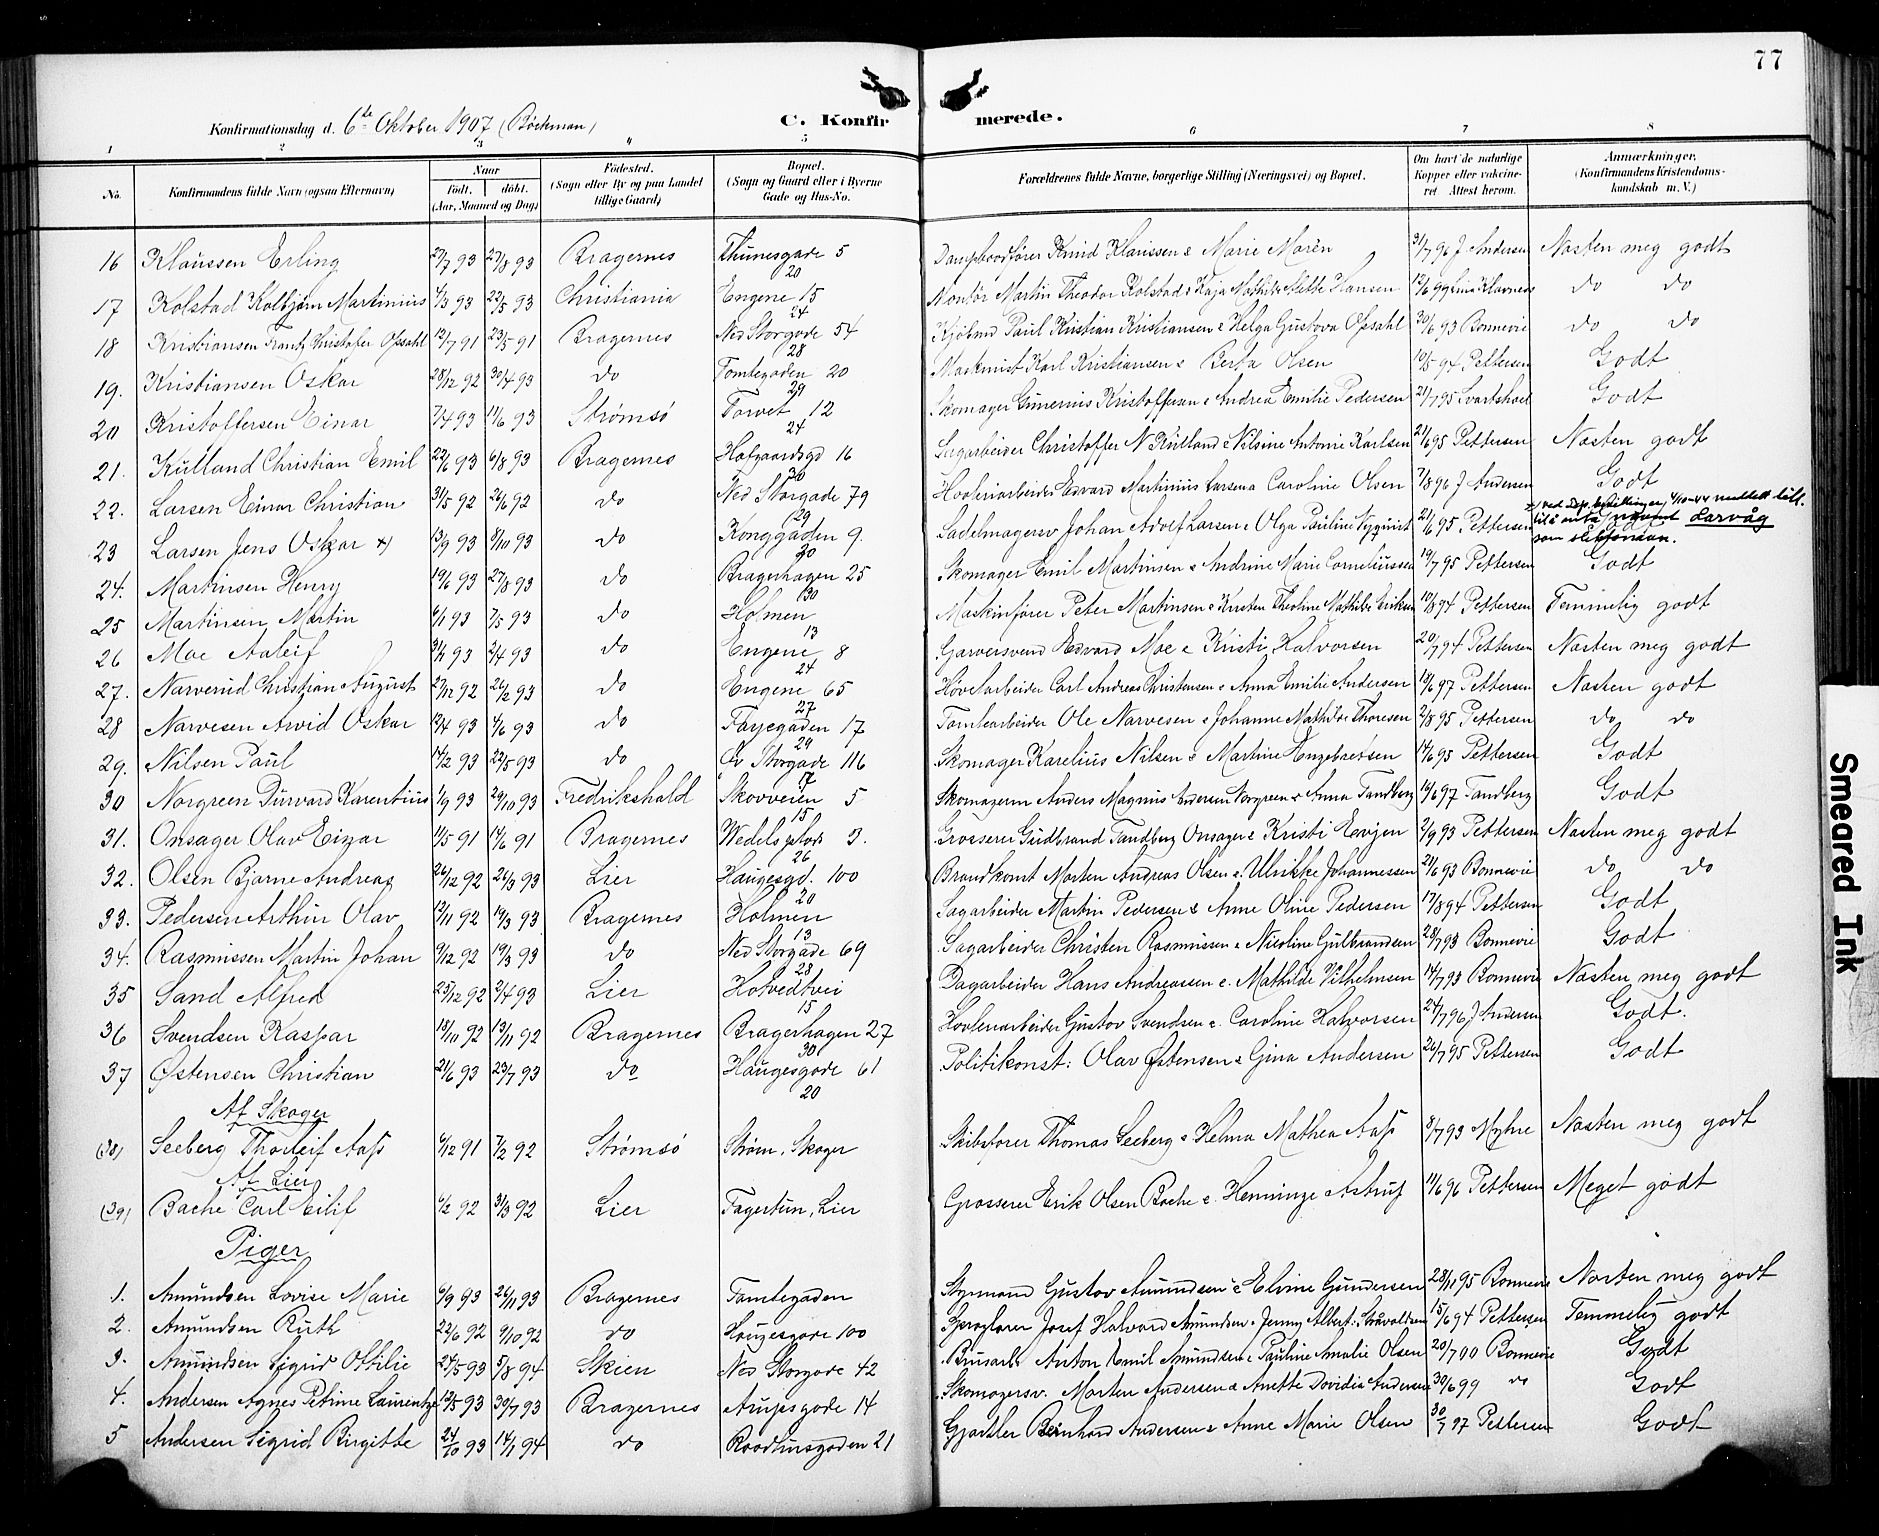 77
Konfirmationsdag d. 6te Oktober 1907 (Böckman)
C. Konfirmerede.
1 2 3 4 5 6 7 8
No. Konfirmandens fulde Navn (ogsaa Efternavn) Naar født. døbt. (Aar, Maaned og Dag) Fødested. (Sogn eller By og paa Landet tillige Gaard) Bopæl. (Sogn og Gaard eller i Byerne Gade og Hus-No. Forældrenes fulde Navne, borgerlige Stilling (Næringsvei) og Bopæl. Om havt de naturlige Kopper eller vakcineret. Attest herom. Anmærkninger. (Konfirmandens Kristendomskundskab m. V.)
16 Klaussen Erling 27/7 93 27/8 93 Bragernes Thunesgade 5 Dampbaadfører Knud Klaussen & Marie Marèn 31/7 96 J Andersen Næsten meg godt
20
17 Kolstad Kolbjørn Martinius 4/3 93 22/5 93 Christiania Engene 15 Kontor Martin Theodor Kolstad & Kaja Mathilde Hansen do do
24
18 Kristiansen Frantz Christofer Opsahl 12/7 91 23/5 91 Bragernes Ned Storgade 54 Kjøbmd Paul Kristian Kristiansen & Helga Gustava Opsahl 30/6 93 Bonnevie do do
28
19. Kristiansen Oskar 28/12 92 30/4 93 do Tomtegaden 20 Maskinist Karl Kristiansen & Berta Olsen 10/5 94 Pettersen Godt
29
20 Kristoffersen Einar 7/4 93 11/6 93 Strømsø Torvet 12 Skomager Gunerius Kristoffersen & Andrea Emilie Pedersen 21/7 95 Godt
24
21. Kulland Christian Emil 22/6 93 6/8 93 Bragernes Hofgaardsgd 16 Sagarbeider Christoffer N Kulland & Nilsine Antonie Karlsen 21/6 95 Pettersen Næsten godt
30
22. Larsen Einar Christian 31/5 92 26/6 92 do Ned Storgade 79 Hovleriarbeider Edvard Martinius Larsen & Caroline Olsen 7/8 96 J Andersen Godt
29
x) ved Dep. bevillinger 4/10-44 meddelt till. til å anta navnet Larvåg som slektsnavn.
23 Larsen Jens Oskar x) 13/9 93 8/10 93 do Konggaden 9. Sadelmagersv Johan Adolf Larsen & Olga Pauline Nyquist 21/6 95 Pettersen
20
24. Martinsen Henry 19/6 93 27/8 93 do Bragerhagen 25 Skomager Emil Martinsen & Andrine Marie Corneliussen 19/7 95 Pettersen Godt
30
25 Martinsen Martin 6/1 93 7/5 93 do Holmen Maskinfører Peter Martinsen & Kirsten Theoline Mathilde Eriksen 10/8 94 Pettersen Temmelig godt
13
26 Moe Aaleif 3/1 93 2/4 93 do Engene 8 Garversvend Edvard Moe & Kristi Halvorsen 20/7 94 Pettersen Næsten meg godt
24
27. Narverud Christian August 27/12 92 26/2 93 do Engene 65 Høvelarbeider Carl Andreas Christensen & Anna Emilie Andersen 18/6 97 Pettersen Næsten godt
27
28 Narvesen Arvid Oskar 12/4 93 4/6 93 do Færjegaden 17 Tomtearbeider Ole Narvesen & Johanne Mathilde Thoresen 2/8 95 Pettersen do do
29
29. Nilsen Paul 14/2 93 22/5 93 do Øv Storgade 116 Skomager Karelius Nilsen & Martine Engebretsen 14/6 95 Pettersen Godt
17
30 Norgreen Durvard Karentius 1/9 93 29/10 93 Fredrikshald Skovveien 5 Skomagerm Anders Magnus Andersen Norgreen & Anna Tandberg 16/6 97 Tandberg Godt
15
31. Onsager Olav Einar 11/5 91 14/6 91 Bragernes Wedels plads 3. Grosserer Gudbrand Tandberg Onsager & Kristi Evjen 2/9 93 Pettersen Næsten meg godt
26
32. Olsen Bjarne Andreas 26/12 92 26/3 93 Lier Haugesgd. 100 Brandkonst Morten Andreas Olsen & Ulrikke Johannessen 21/6 93 Bonnevie do do
20
33. Pedersen Arthur Olav 12/11 92 19/3 93 Bragernes Holmen Sagarbeider Martin Pedersen & Anne Oline Pedersen 17/8 94 Pettersen Godt
13
34. Rasmussen Martin Johan 9/12 92 19/3 93 do Ned Storgade 69 Sagarbeider Christen Rasmussen & Nicoline Gulbrandsen 28/7 93 Bonnevie Godt
28
35 Sand Alfred 25/12 92 2/4 93 Lier Hotvedtvei Dagarbeider Hans Andreassen & Mathilde Vilhelmsen 14/7 93 Bonnevie Næsten meg godt
15
36 Svendsen Kaspar 18/10 92 13/11 92 Bragernes Bragerhagen 27 Hovleriarbeider Gustav Svendsen & Caroline Halvorsen 24/7 96 J Andersen Godt.
30
37 Østensen Christian 21/6 93 23/7 93 do Haugesgade 61 Politikonst: Olav Østensen & Gina Andersen 26/7 95 Pettersen Godt
20
Af Skoger
(38) Seeberg Thorleif Aass 6/12 91 7/2 92 Strømsø Strøm, Skoger Skibsfører Thomas Seeberg & Helma Mathea Aass 8/7 93 Myhre Næsten meg godt
Af Lier
(39) Bache Carl Eilif 6/2 92 31/3 92 Lier Fagertun, Lier Grosserer Erik Olsen Bache & Henninge Astrup 11/6 96 Pettersen Meget godt
Piger
1. Amundsen Lovise Marie 6/9 93 26/11 93 Bragernes Tomtegaden Styrmand Gustav Amundsen & Elvine Gundersen 28/11 95 Bonnevie Næsten meg godt
2. Amundsen Ruth 22/6 92 9/10 92 do Haugesgade 100 Josef Halvard Amundsen & Jenny Albert. 15/6 94 Pettersen Temmelig godt
3. Amundsen Sigrid Ottilie 24/5 93 5/8 94 Skien Ned Storgade 42 Brusarb. Anton Emil Amundsen & Pauline Amalie Olsen 20/7 00 Bonnevie Godt
4. Andersen Agnes Petrine Laurentze 12/5 93 30/7 93 Bragernes Arupsgade 14 Skomagersv. Morten Andersen & Anette Davidia Andersen 30/6 99 do Godt
5 Andersen Sigrid Birgitte 24/10 93 14/1 94 do Raadhusgaden 21 Gjørtler Bernhard Andersen & Anne Marie Olsen 30/7 97 Pettersen Godt
Smeared Ink